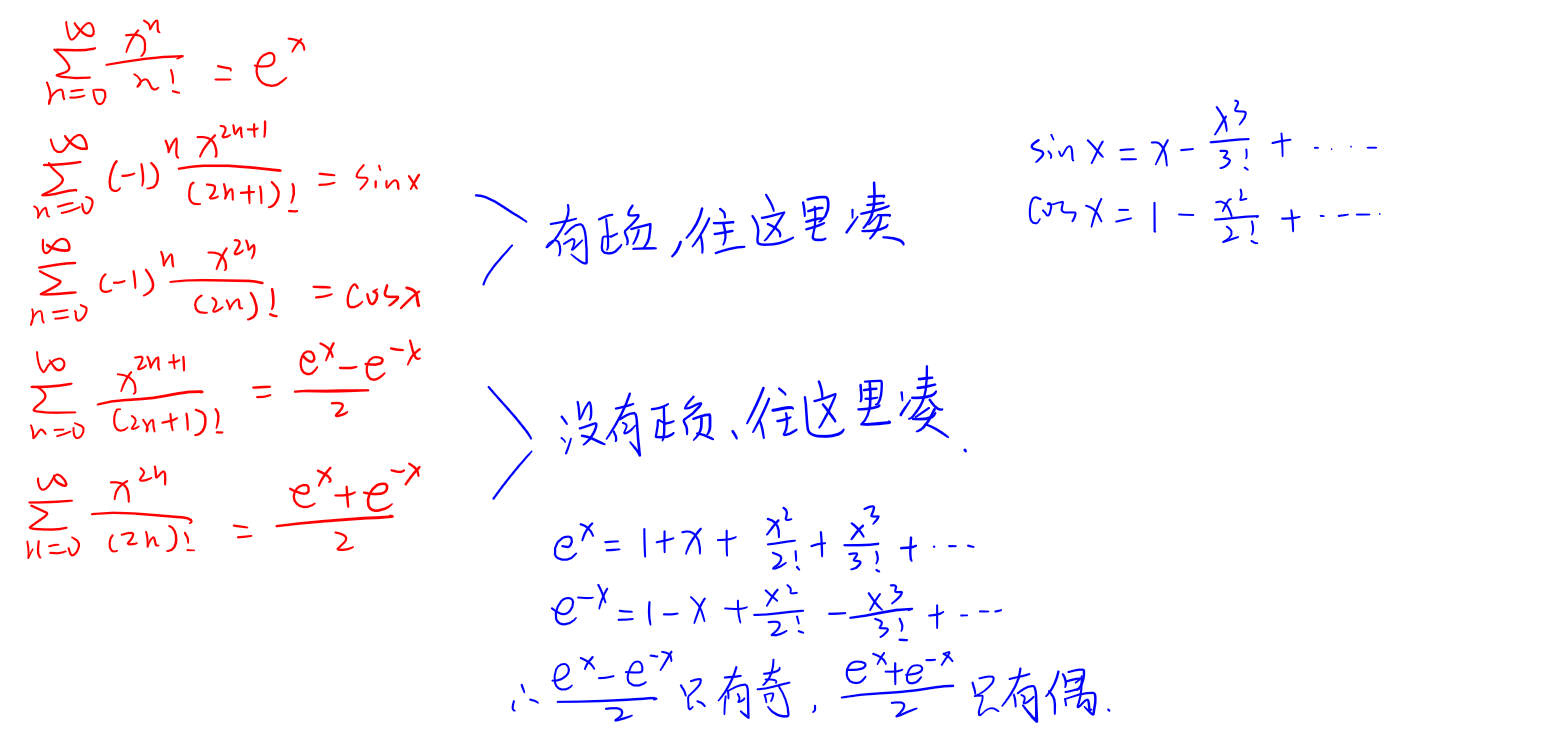 ∑_{n=0}^{∞} x^n/n! = e^x
∑_{n=0}^{∞} (-1)^n x^{2n+1}/(2n+1)! = sinx
∑_{n=0}^{∞} (-1)^n x^{2n}/(2n)! = cosx
有正负,往这里凑
sinx = x - x^3/3! + ·····
cosx = 1 - x^2/2! + ·····
∑_{n=0}^{∞} x^{2n+1}/(2n+1)! = (e^x - e^{-x})/2
∑_{n=0}^{∞} x^{2n}/(2n)! = (e^x + e^{-x})/2
没有正负、往这里凑.
e^x = 1 + x + x^2/2! + x^3/3! + ···
e^{-x} = 1 - x + x^2/2! - x^3/3! + ···
∴ (e^x - e^{-x})/2 只有奇, (e^x + e^{-x})/2 只有偶.